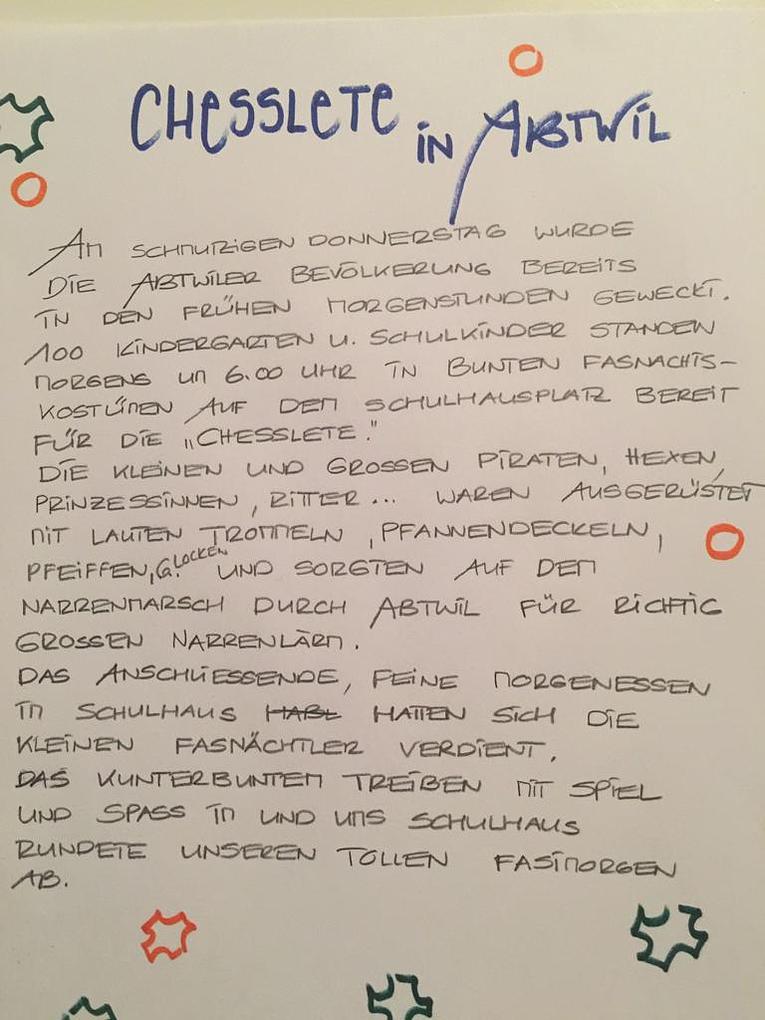 CHESSLETE IN ABTWIL
AM SCHMUTZIGEN DONNERSTAG WURDE
DIE ABTWILER BEVÖLKERUNG BEREITS
IN DEN FRÜHEN MORGENSTUNDEN GEWECKT.
100 KINDERGARTEN U. SCHULKINDER STANDEN
MORGENS UM 6.00 UHR IN BUNTEN FASNACHTS-
KOSTÜMEN AUF DEM SCHULHAUSPLATZ BEREIT
FÜR DIE „CHESSLETE."
DIE KLEINEN UND GROSSEN PIRATEN, HEXEN,
PRINZESSINNEN, RITTER... WAREN AUSGERÜSTET
MIT LAUTEN TROMMELN, PFANNENDECKELN,
PFEIFFEN, GLOCKEN UND SORGTEN AUF DEM
NARRENMARSCH DURCH ABTWIL FÜR RICHTIG
GROSSEN NARRENLÄRM.
DAS ANSCHLIESSENDE, FEINE MORGENESSEN
IM SCHULHAUS HATTEN SICH DIE
KLEINEN FASNÄCHTLER VERDIENT.
DAS KUNTERBUNTEM TREIBEN MIT SPIEL
UND SPASS IM UND UMS SCHULHAUS
RUNDETE UNSEREN TOLLEN FASIMORGEN
AB.